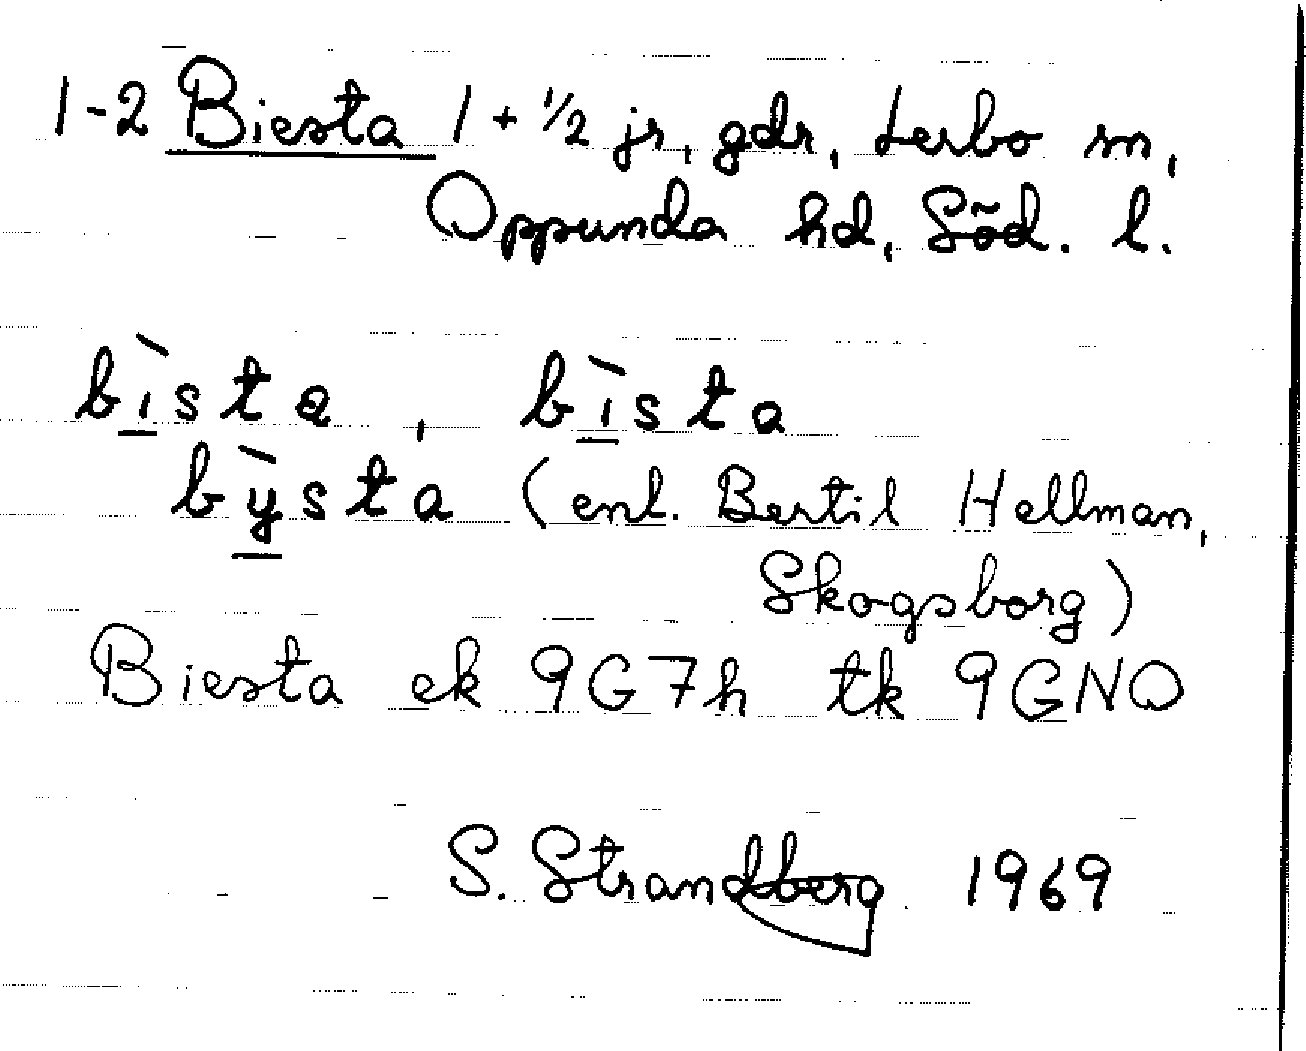 1-2 Biesta 1 + 1/2 jr, gdr, Lerbo sn,
Oppunda hd, Söd. l.
bì̲sta, bì̲sta
bỳ̲sta (enl. Bertil Hellman,
Skogsborg)
Biesta ek 9G7h tk 9GNO
S. Strandberg 1969